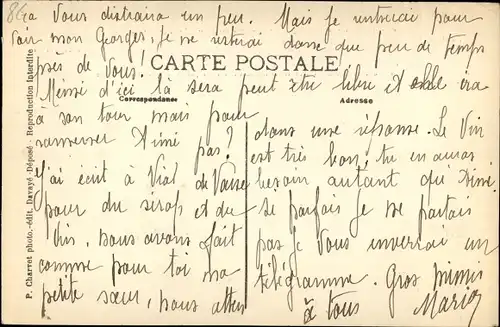 Vous distraira un peu. Mais je rentrerai pour
voir mon Georges, je ne resterai donc que peu de temps
près de Vous.
CARTE POSTALE
Mimi d'ici là sera peut être libre et elle ira
Correspondance
Adresse
à son tour mais pour
ramener Aimé pas?
J'ai écrit à Vial de Vaise
pour du sirop et du
Vin, nous avons fait
comme pour toi ma
petite sœur, nous atten
dans une réponse. Le Vin
est très bon, tu en auras
besoin autant qu'Aimé.
Si parfois je ne partais
pas je Vous enverrai un
télégramme. Gros mimis
à tous
Maria
P. Charvet photo.-édit. Davayé -Déposé- Reproduction interdite